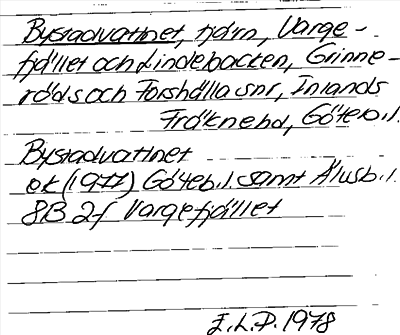 Bystadvattnet, tjärn, Varge-
fjället och Lindebacken, Grinne-
röds och Forshälla snr, Inlands
Fräkne hd, Göteb.l.
Bystadvattnet
ek (1977) Göteb.l. samt Älvsb.l.
8B 2f Vargefjället
E.L.P. 1978